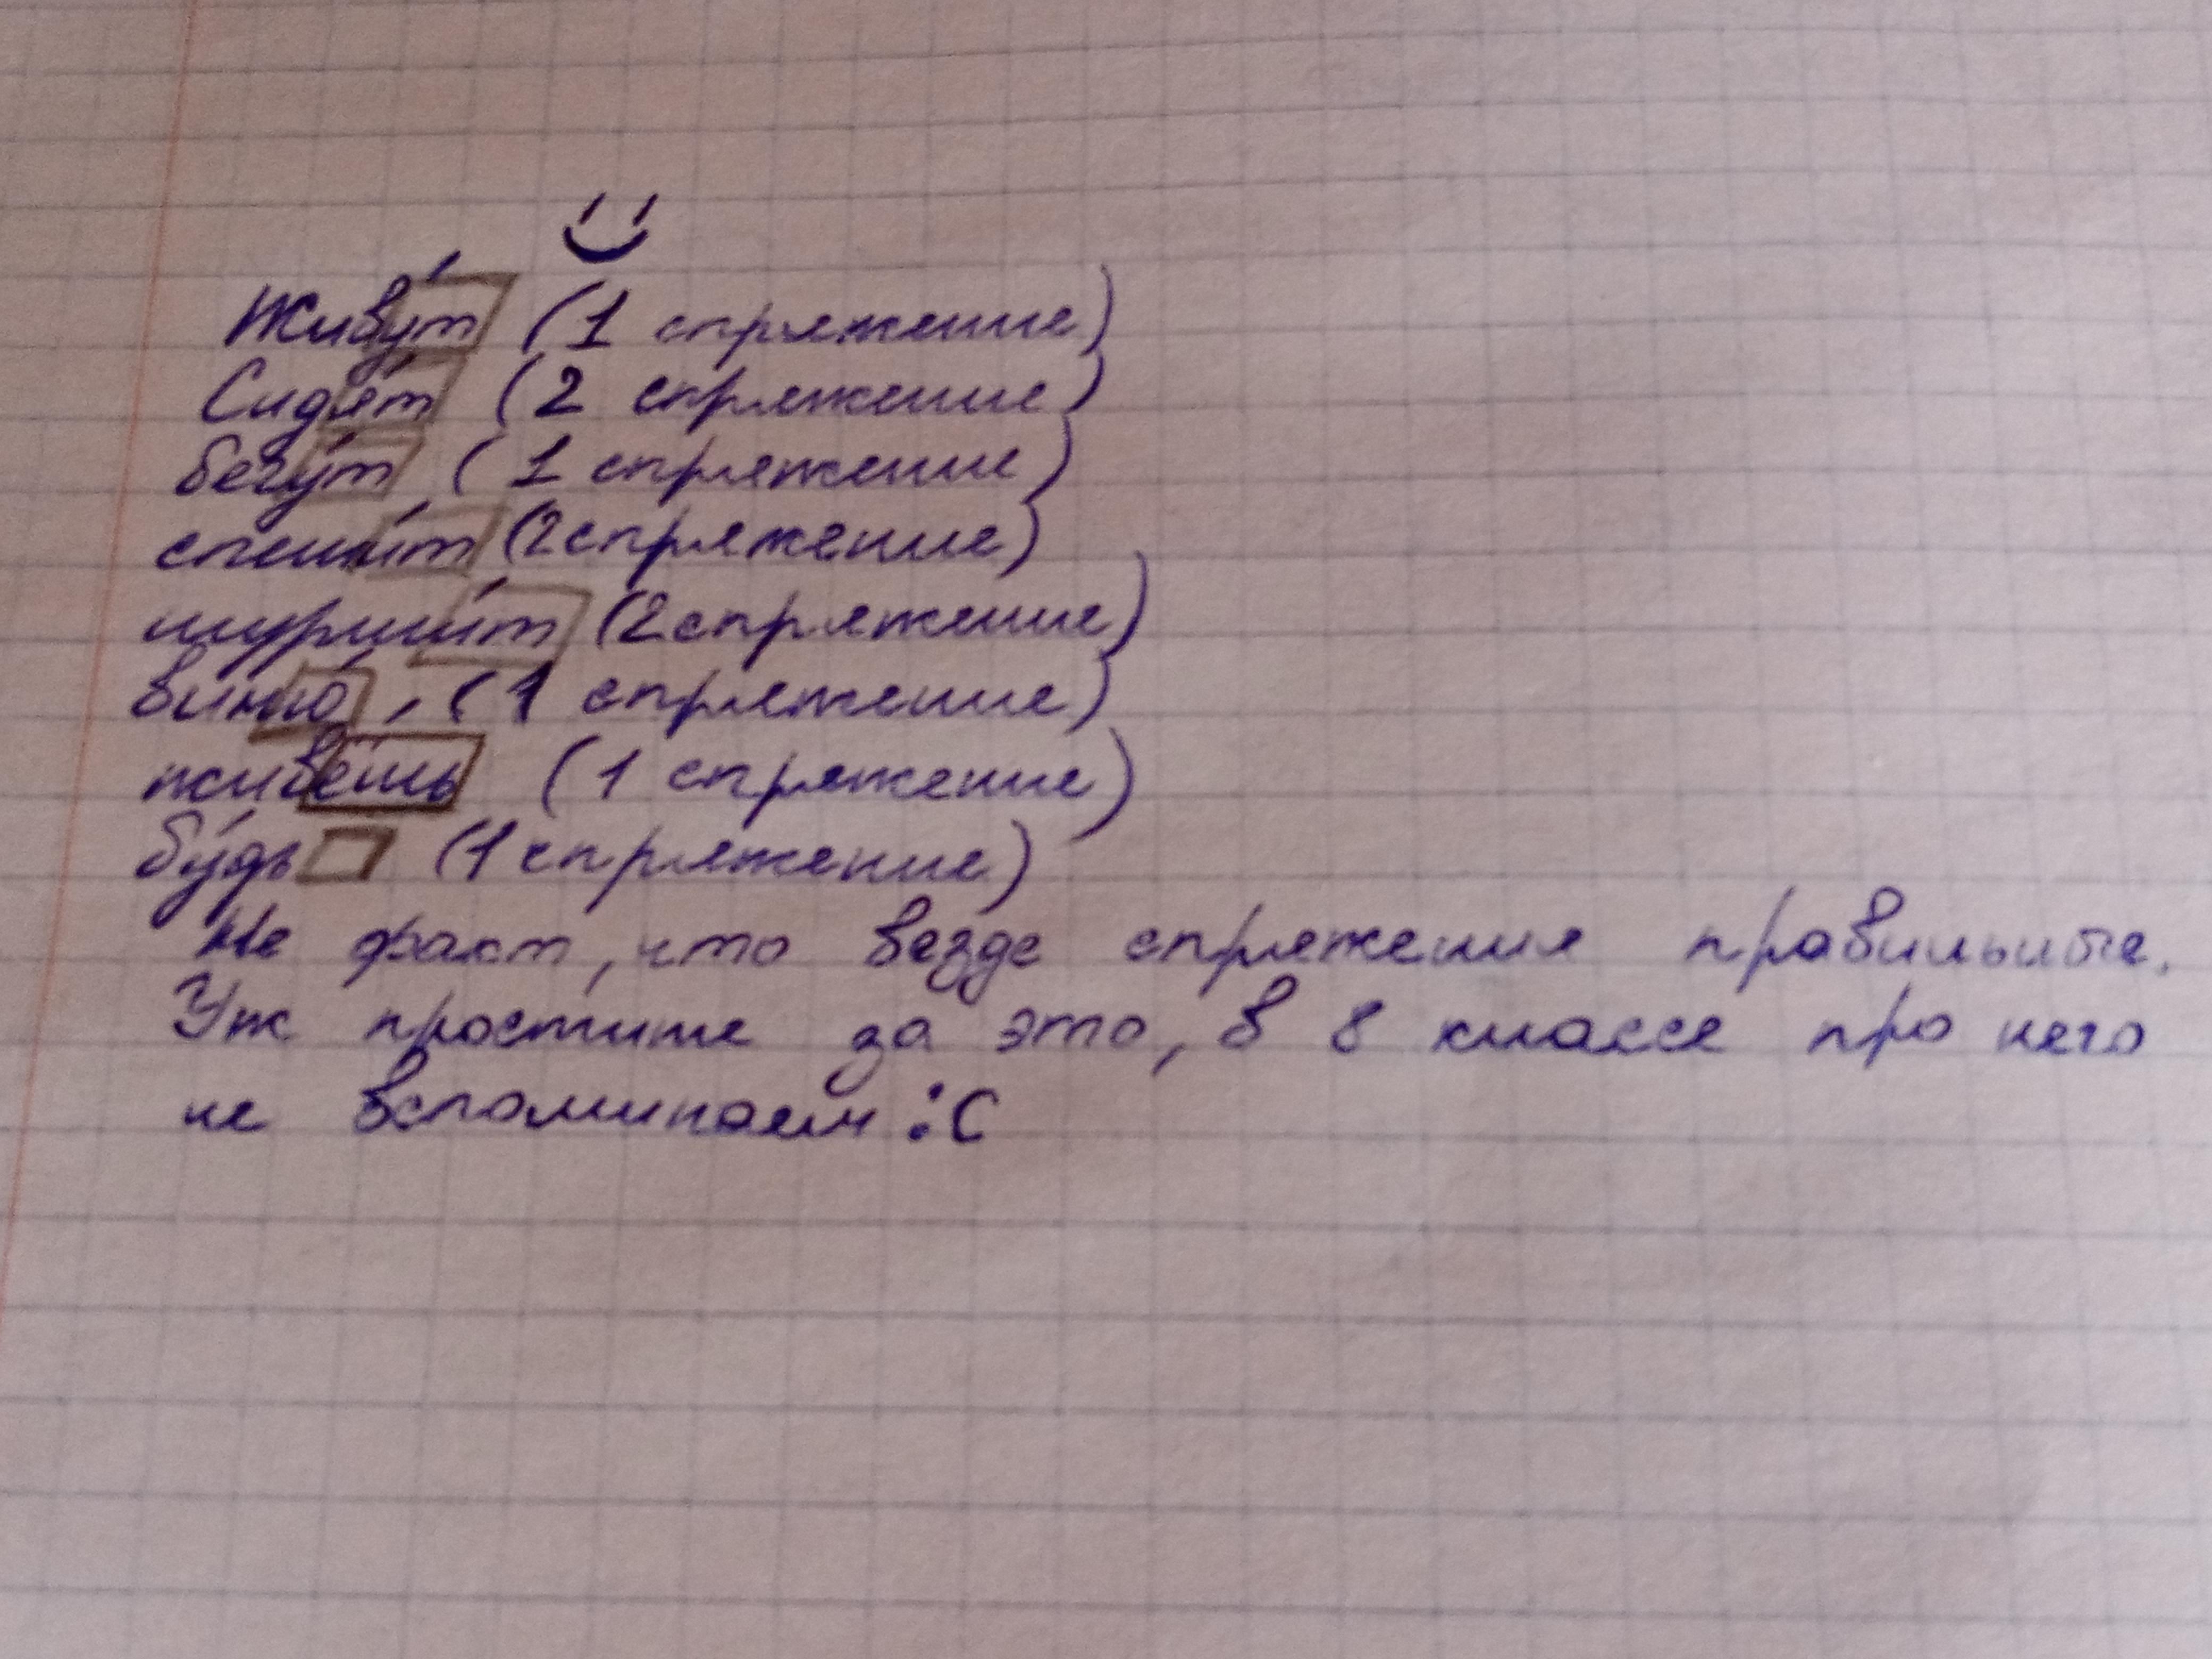 Живут (1 спряжение)
Сидят (2 спряжение)
бегут (1 спряжение)
спешит (2 спряжение)
шуршит (2 спряжение)
виню, (1 спряжение)
живёшь (1 спряжение)
будь (1 спряжение)
Не факт, что везде спряжения правильные.
Уж простите за это, в 8 классе про него
не вспоминаем :С